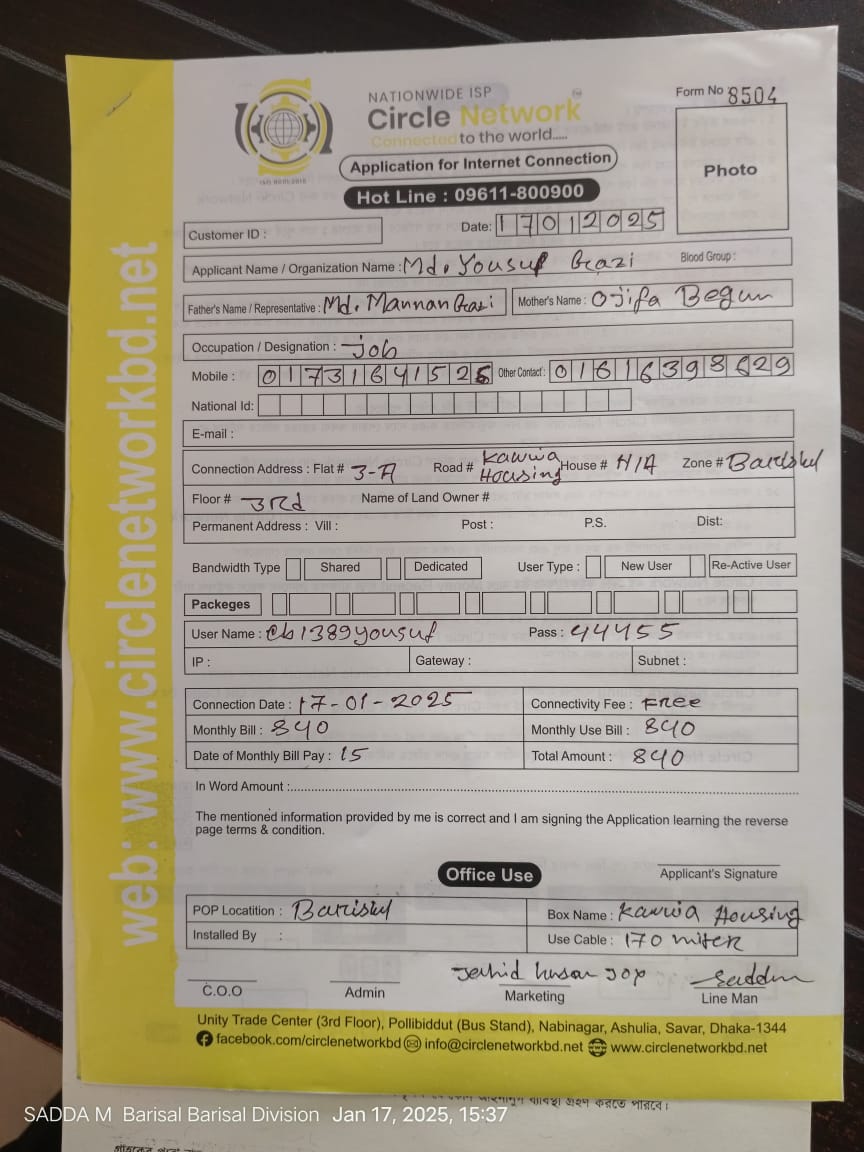 NATIONWIDE ISP
Circle Network
Connected to the world.....
Application for Internet Connection
Hot Line : 09611-800900
Form No 8504
Photo
Customer ID :
Date: 17012025
Applicant Name / Organization Name : Md. Yousuf Gazi Blood Group :
Father's Name / Representative : Md. Mannan Gazi Mother's Name : Ojifa Begum
Occupation / Designation : Job
Mobile : 01731641526 Other Contact : 01616398629
National Id:
E-mail :
Connection Address : Flat # 3-A Road # Kawnia Housing House # N/A Zone #
Floor # 3Rd Name of Land Owner #
Permanent Address : Vill : Post : P.S. Dist:
Bandwidth Type Shared Dedicated User Type : New User Re-Active User
Packeges
User Name : @b1389yousuf Pass : 44455
IP : Gateway : Subnet :
Connection Date : 17-01-2025 Connectivity Fee : Free
Monthly Bill : 840 Monthly Use Bill : 840
Date of Monthly Bill Pay : 15 Total Amount : 840
In Word Amount :
The mentioned information provided by me is correct and I am signing the Application learning the reverse
page terms & condition.
Applicant's Signature
Office Use
POP Locatition : Barisal Box Name : Kawnia Housing
Installed By : Use Cable : 170 miter
C.O.O Admin Marketing Line Man
Unity Trade Center (3rd Floor), Pollibiddut (Bus Stand), Nabinagar, Ashulia, Savar, Dhaka-1344
facebook.com/circlenetworkbd info@circlenetworkbd.net www.circlenetworkbd.net
web: www.circlenetworkbd.net
SADDA M Barisal Barisal Division Jan 17, 2025, 15:37